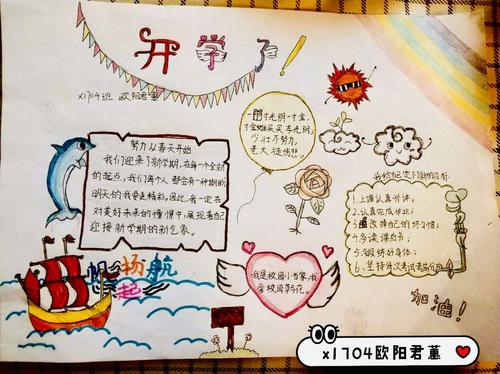 开学了!
x1704班 欧阳君蕙
一寸光阴一寸金,
寸金难买寸光阴,
少壮不努力,
老大徒伤悲。
努力从春天开始
我们迎来了新学期,在每一个全新
的起点,我们每个人都会有一种期盼
明天的我会更精彩。因此,我一定在
对美好未来的憧憬中,展现着配
迎接新学期的新气象。
我给自己定下新的目标
1.上课认真听讲。
2.认真完成作业。
3.改掉自己的坏习惯。
4.多读课外书。
5.锻炼好身体。
6.坚持每次考试
扬帆起航
我是校园小当家,我
爱校园
加油!
x1704欧阳君蕙